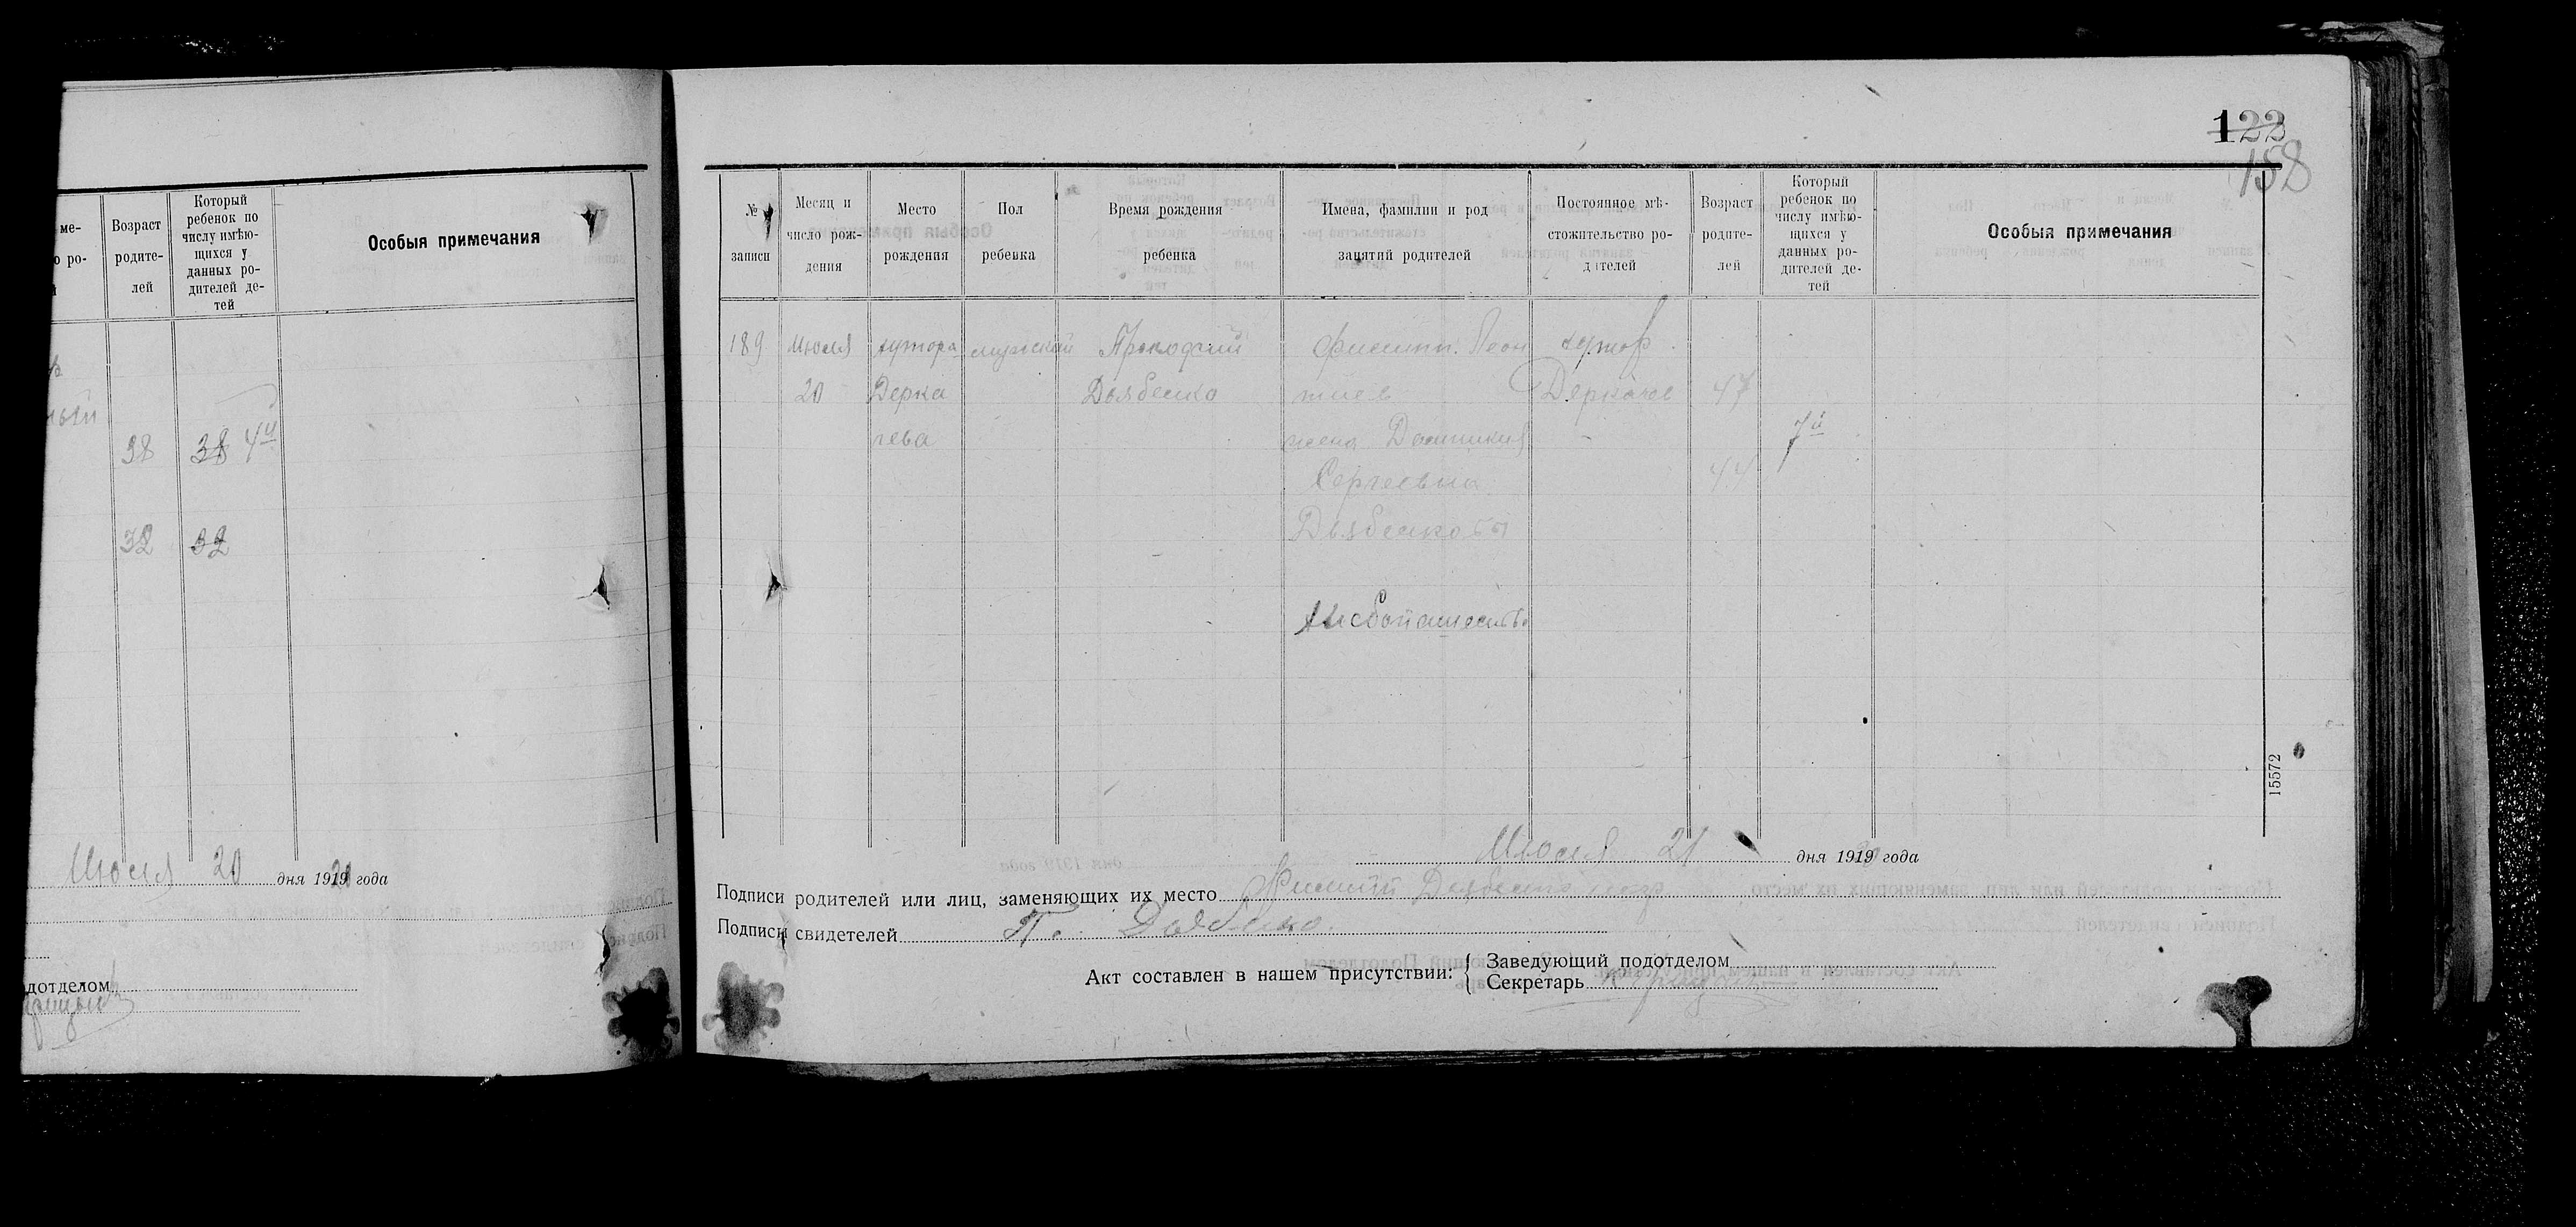 122
158
ме-
о ро-
Возраст
родите-
лей
Который
ребенок по
числу имѣю-
щихся у
данных ро-
дителей де-
тей
Особыя примечания
38 38 4й
32 32
Июля 20 дня 1919 20 года
дотделом
№
записи
Месяц и
число рож-
дения
Место
рождения
Пол
ребенка
Время рождения
ребенка
Имена, фамилии и род
занятий родителей
Постоянное мѣ-
стожительство ро-
дителей
Возраст
родите-
лей
Который
ребенок по
числу имѣю-
щихся у
данных ро-
дителей де-
тей
Особыя примечания
189 Июля хутора мужской Прокофий Филипп Леон хутор
20 Дерка Дзябенко тиев Деркачев 47
чева жена Домникия 7й
Сергеевна 44
Дзябенковы
Хлебопашество
15572
Июля 21 дня 1919 20 года
Подписи родителей или лиц, заменяющих их место Филипп Дзябенко
Подписи свидетелей П. Дзябенко.
Акт составлен в нашем присутствии:
Заведующий подотделом
Секретарь